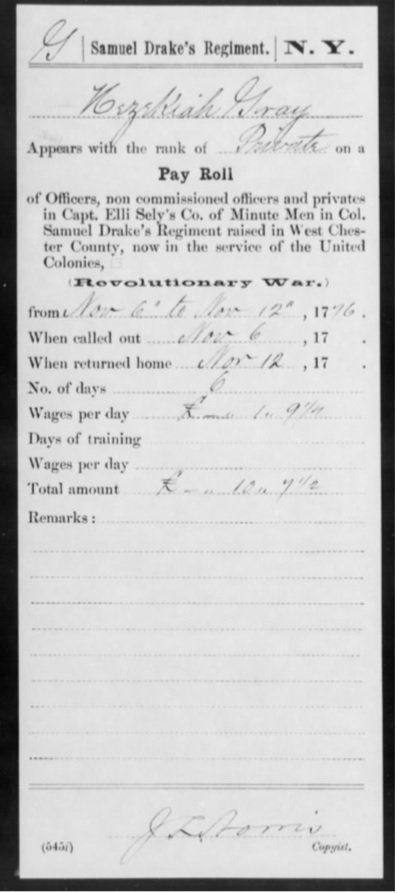 G | Samuel Drake's Regiment. | N. Y.
Hezekiah Gray
Appears with the rank of Private on a
Pay Roll
of Officers, non commissioned officers and privates
in Capt. Elli Sely's Co. of Minute Men in Col.
Samuel Drake's Regiment raised in West Ches-
ter County, now in the service of the United
Colonies,
(Revolutionary War.)
from Nov 6" to Nov 12", 1776.
When called out Nov 6, 17 .
When returned home Nov 12, 17 .
No. of days 6
Wages per day £ — " 1 " 9 1/4
Days of training
Wages per day
Total amount £ — " 10 " 7 1/2
Remarks:
Copyist.
(545i)